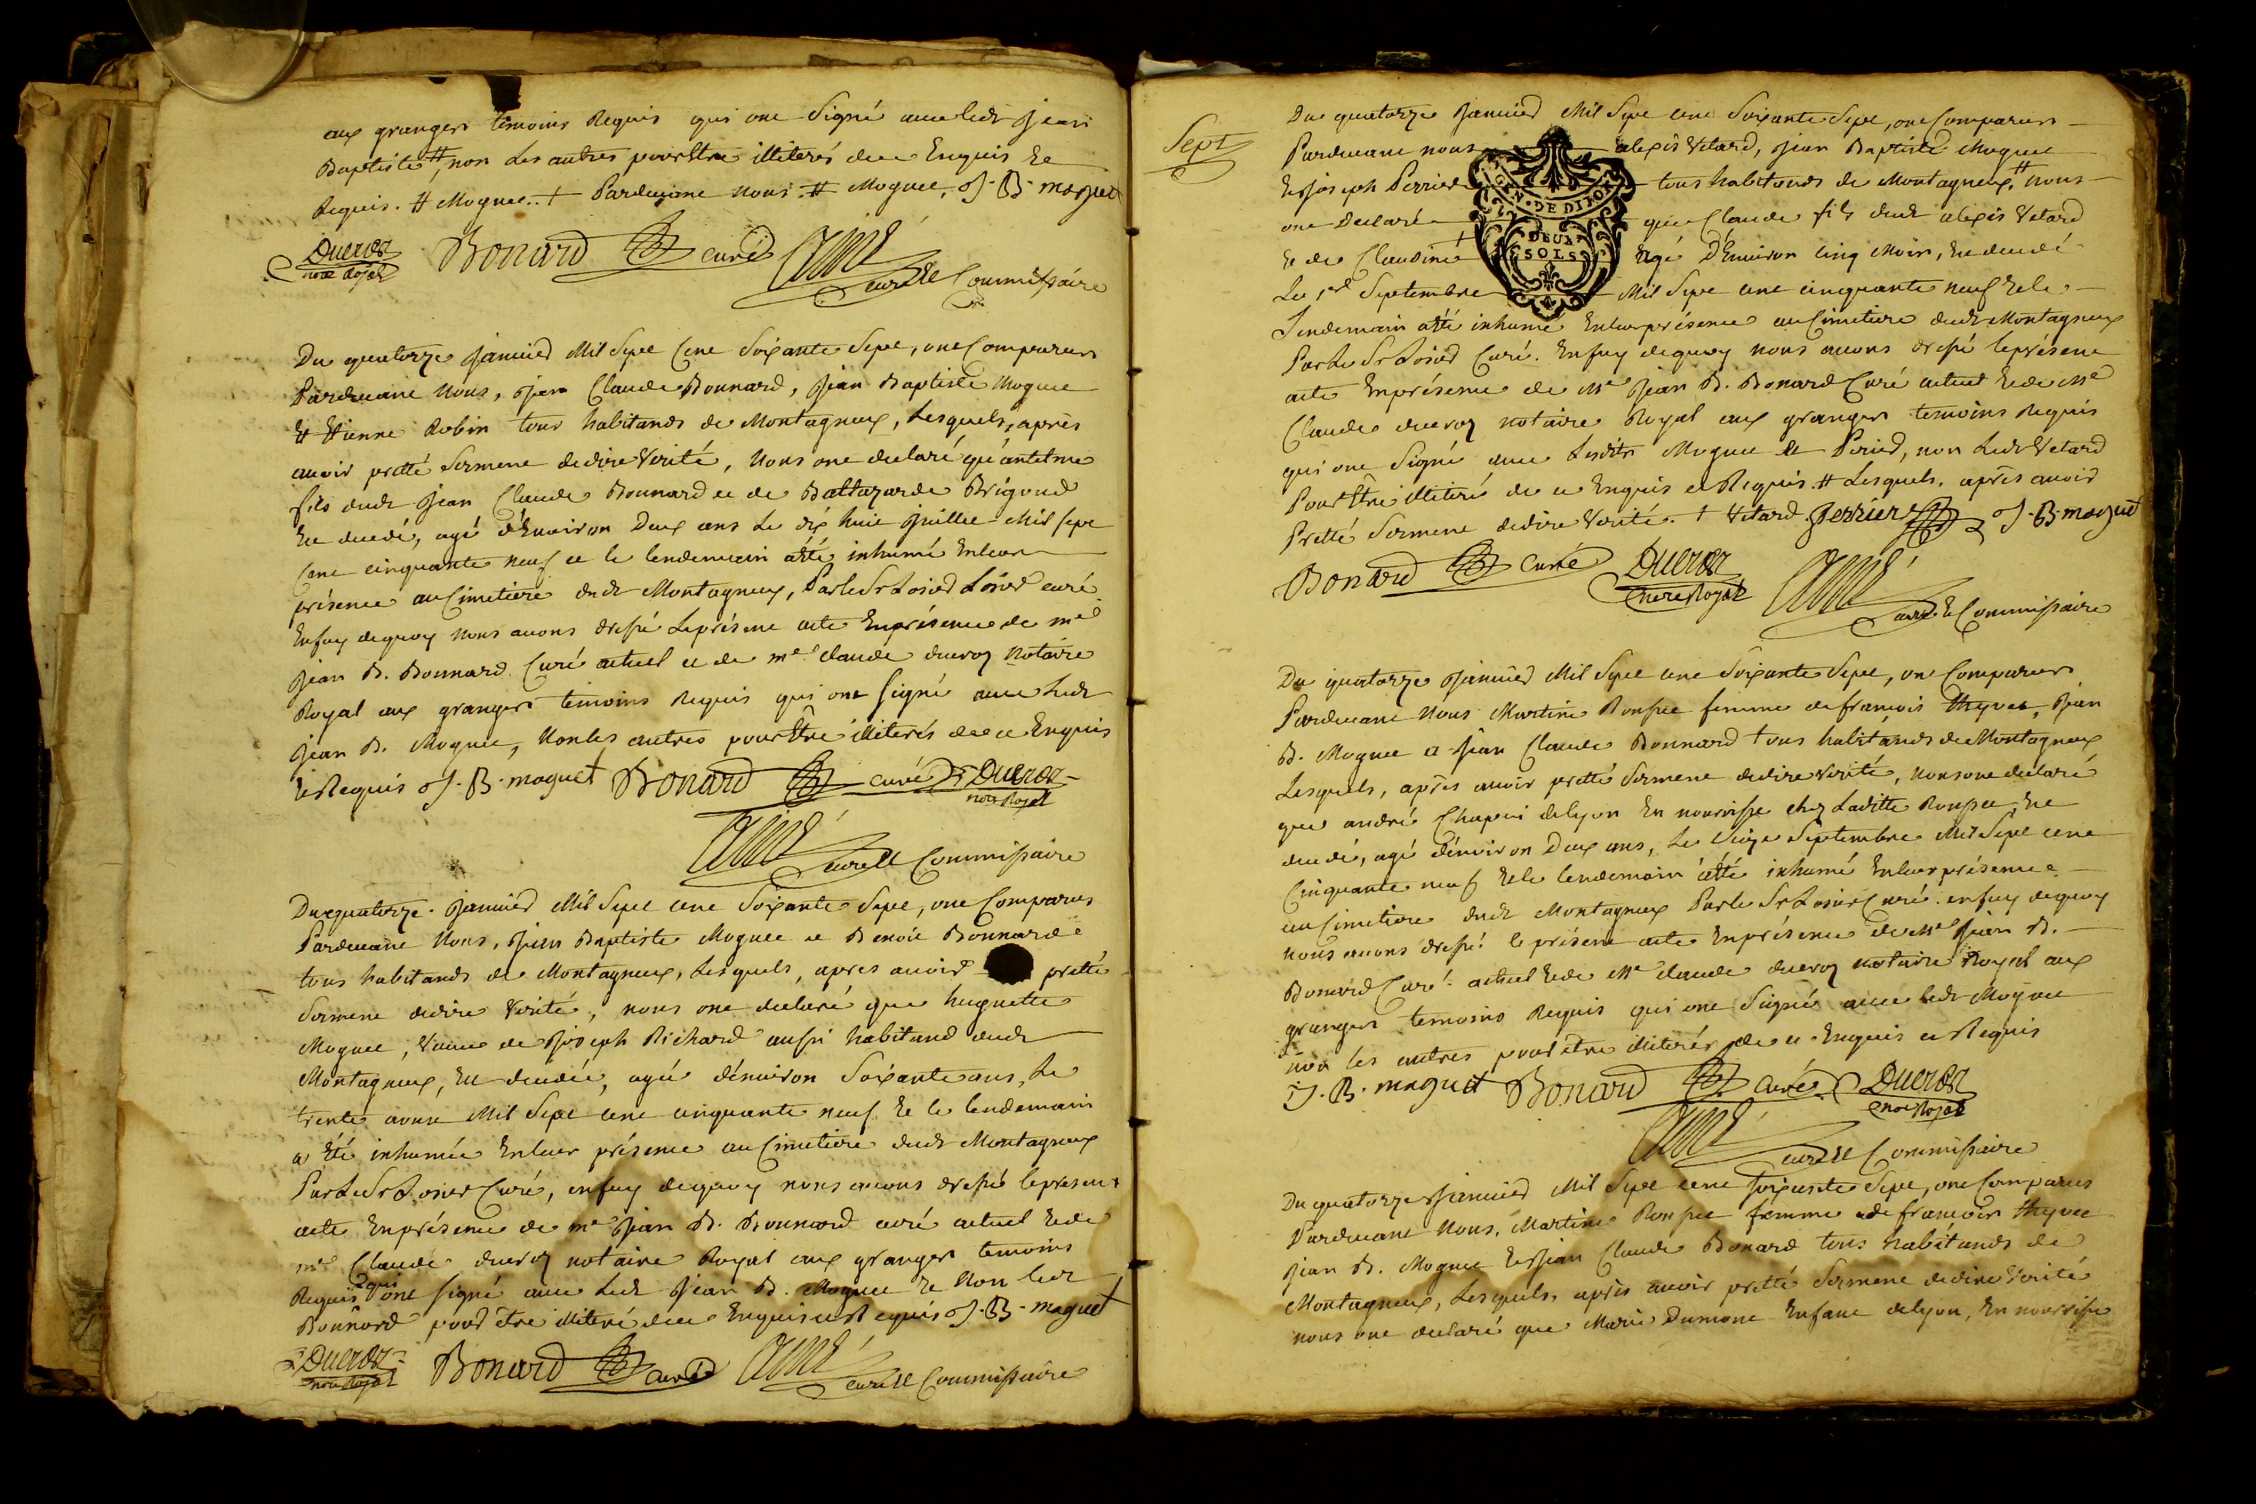 aux granges temoins Requis qui ont Signé avec ledt Jean
Baptiste #, non Les autres pour Etre illiterés de ce Enquis Et
Requis. # Moguet. + Pardevant Nous. # Moguet, J. B. moguet
Ducroz
notre Royal
Bonard curé
Aimé
curé et Commissaire
Du quatorze Janvier Mil Sept Cent Soixante Sept, ont Comparus
Pardevant Nous, Jean Claude Bonnard, Jean Baptiste Moguet
Et Etienne Robin tous habitands de Montagneux, Lesquels, après
avoir pretté Serment de dire Verité, Nous ont declaré qu'antelme
fils dudt Jean Claude Bonnard et de Baltazarde Brigand
Est decedé, agé d'Environ Deux ans Le dix huit Juillet Mil sept
Cent cinquante neuf et le lendemain a été inhumé Enleur
présence au Cimetiere dudt Montagneux, Par le Sr Losier Losier curé
En foy dequoy nous avons dressé Le présent acte En présence de me
Jean B. Bonnard Curé actuel et de me claude ducroz Notaire
Royal aux granges temoins Requis qui ont signé avec Ledt
Jean B. Moguet, Non les autres pour Etre illiterés de ce Enquis
Et Requis J. B. moguet Bonard curé Ducroz
notre Royal
Aimé
curé et Commissaire
Du quatorze Janvier Mil Sept cent Soixante Sept, ont Comparus
Pardevant Nous, Jean Baptiste Moguet et Benoit Bonnard
tous habitands de Montagneux, Lesquels, apres avoir pretté
Serment de dire Verité, nous ont declaré que huguette
Moguet, Veuve de Joseph Richard aussi habitand dudt
Montagneux, Est decedée, agée d'environ Soixante ans, Le
trente aoust Mil Sept cent cinquante neuf Et le lendemain
a été inhumée Enleur présence au Cimetiere dudt Montagneux
Par Le Sr Losier Curé, en foy dequoy nous avons dressé le present
acte En présence de me Jean B. Bonnard curé actuel Et de
me Claude ducroz notaire Royal aux granges temoins
Requis qui ont signé avec Ledt Jean B. Moguet Et Non ledt
Bonnard pour être illiteré de ce Enquis et Requis J. B. moguet
Ducroz
notre Royal
Bonard curé
Aimé
curé et Commissaire
Sept
Du quatorze Janvier Mil Sept cent Soixante Sept, ont Comparus
Pardevant nous alexis Vetard, Jean Baptiste Moguet
Et Joseph Perrier tous habitands de Montagneux, # nous
ont Declaré que Claude fils dudt alexis Vetard
Et de Claudine + agé D'Environ cinq Mois, Est decedé
Le 1er Septembre Mil Sept cent cinquante neuf Et le
lendemain a été inhumé Enleur présence au Cimetiere dudt Montagneux
Par Le Sr Losier Curé. En foy dequoy nous avons dressé le présent
acte En présence de Me Jean B. Bonard Curé actuel Et de Me
Claude ducroz notaire Royal aux granges temoins Requis
qui ont Signé avec Lesdits Moguet et Perier, non Ledt Vetard
Pour Etre illiteré de ce Enquis et Requis. # Lesquels, après avoir
Pretté Serment de dire Verité. + Vetard. Perrier J. B. moguet
GEN. DE DIJON
DEUX
SOLS
Bonard curé Ducroz
notre Royal
Aimé
curé et Commissaire
Du quatorze Janvier Mil Sept cent Soixante Sept, ont Comparus
Pardevant Nous Martine femme de francois Jean
B. Moguet et Jean Claude Bonnard tous habitands de Montagneux
Lesquels, après avoir pretté Serment de dire verité, nous ont declaré
que andré Chapui de lyon En nourrisse chez Laditte Est
decedé, agé d'environ Deux ans, Le Seize Septembre Mil Sept cent
Cinquante neuf Et le lendemain a été inhumé Enleur présence
au Cimetiere dudt Montagneux Par le Sr Losier Curé. en foy dequoy
nous avons dressé le présent acte En présence de Me Jean B.
Bonard Curé actuel Et de Me claude ducroz notaire Royal aux
granges temoins Requis qui ont Signé avec ledt Moguet
non les autres pour être illiterés de ce Enquis et Requis
J. B. moguet Bonard curé Ducroz
notre Royal
Aimé
curé et Commissaire
Du quatorze Janvier Mil Sept cent Soixante Sept, ont Comparus
Pardevant Nous, Martine femme de francois
Jean B. Moguet Et Jean Claude Bonard tous habitands de
Montagneux, Lesquels, après avoir pretté Serment de dire Verité
nous ont declaré que Marie Dumont Enfant de lyon, En nourrisse